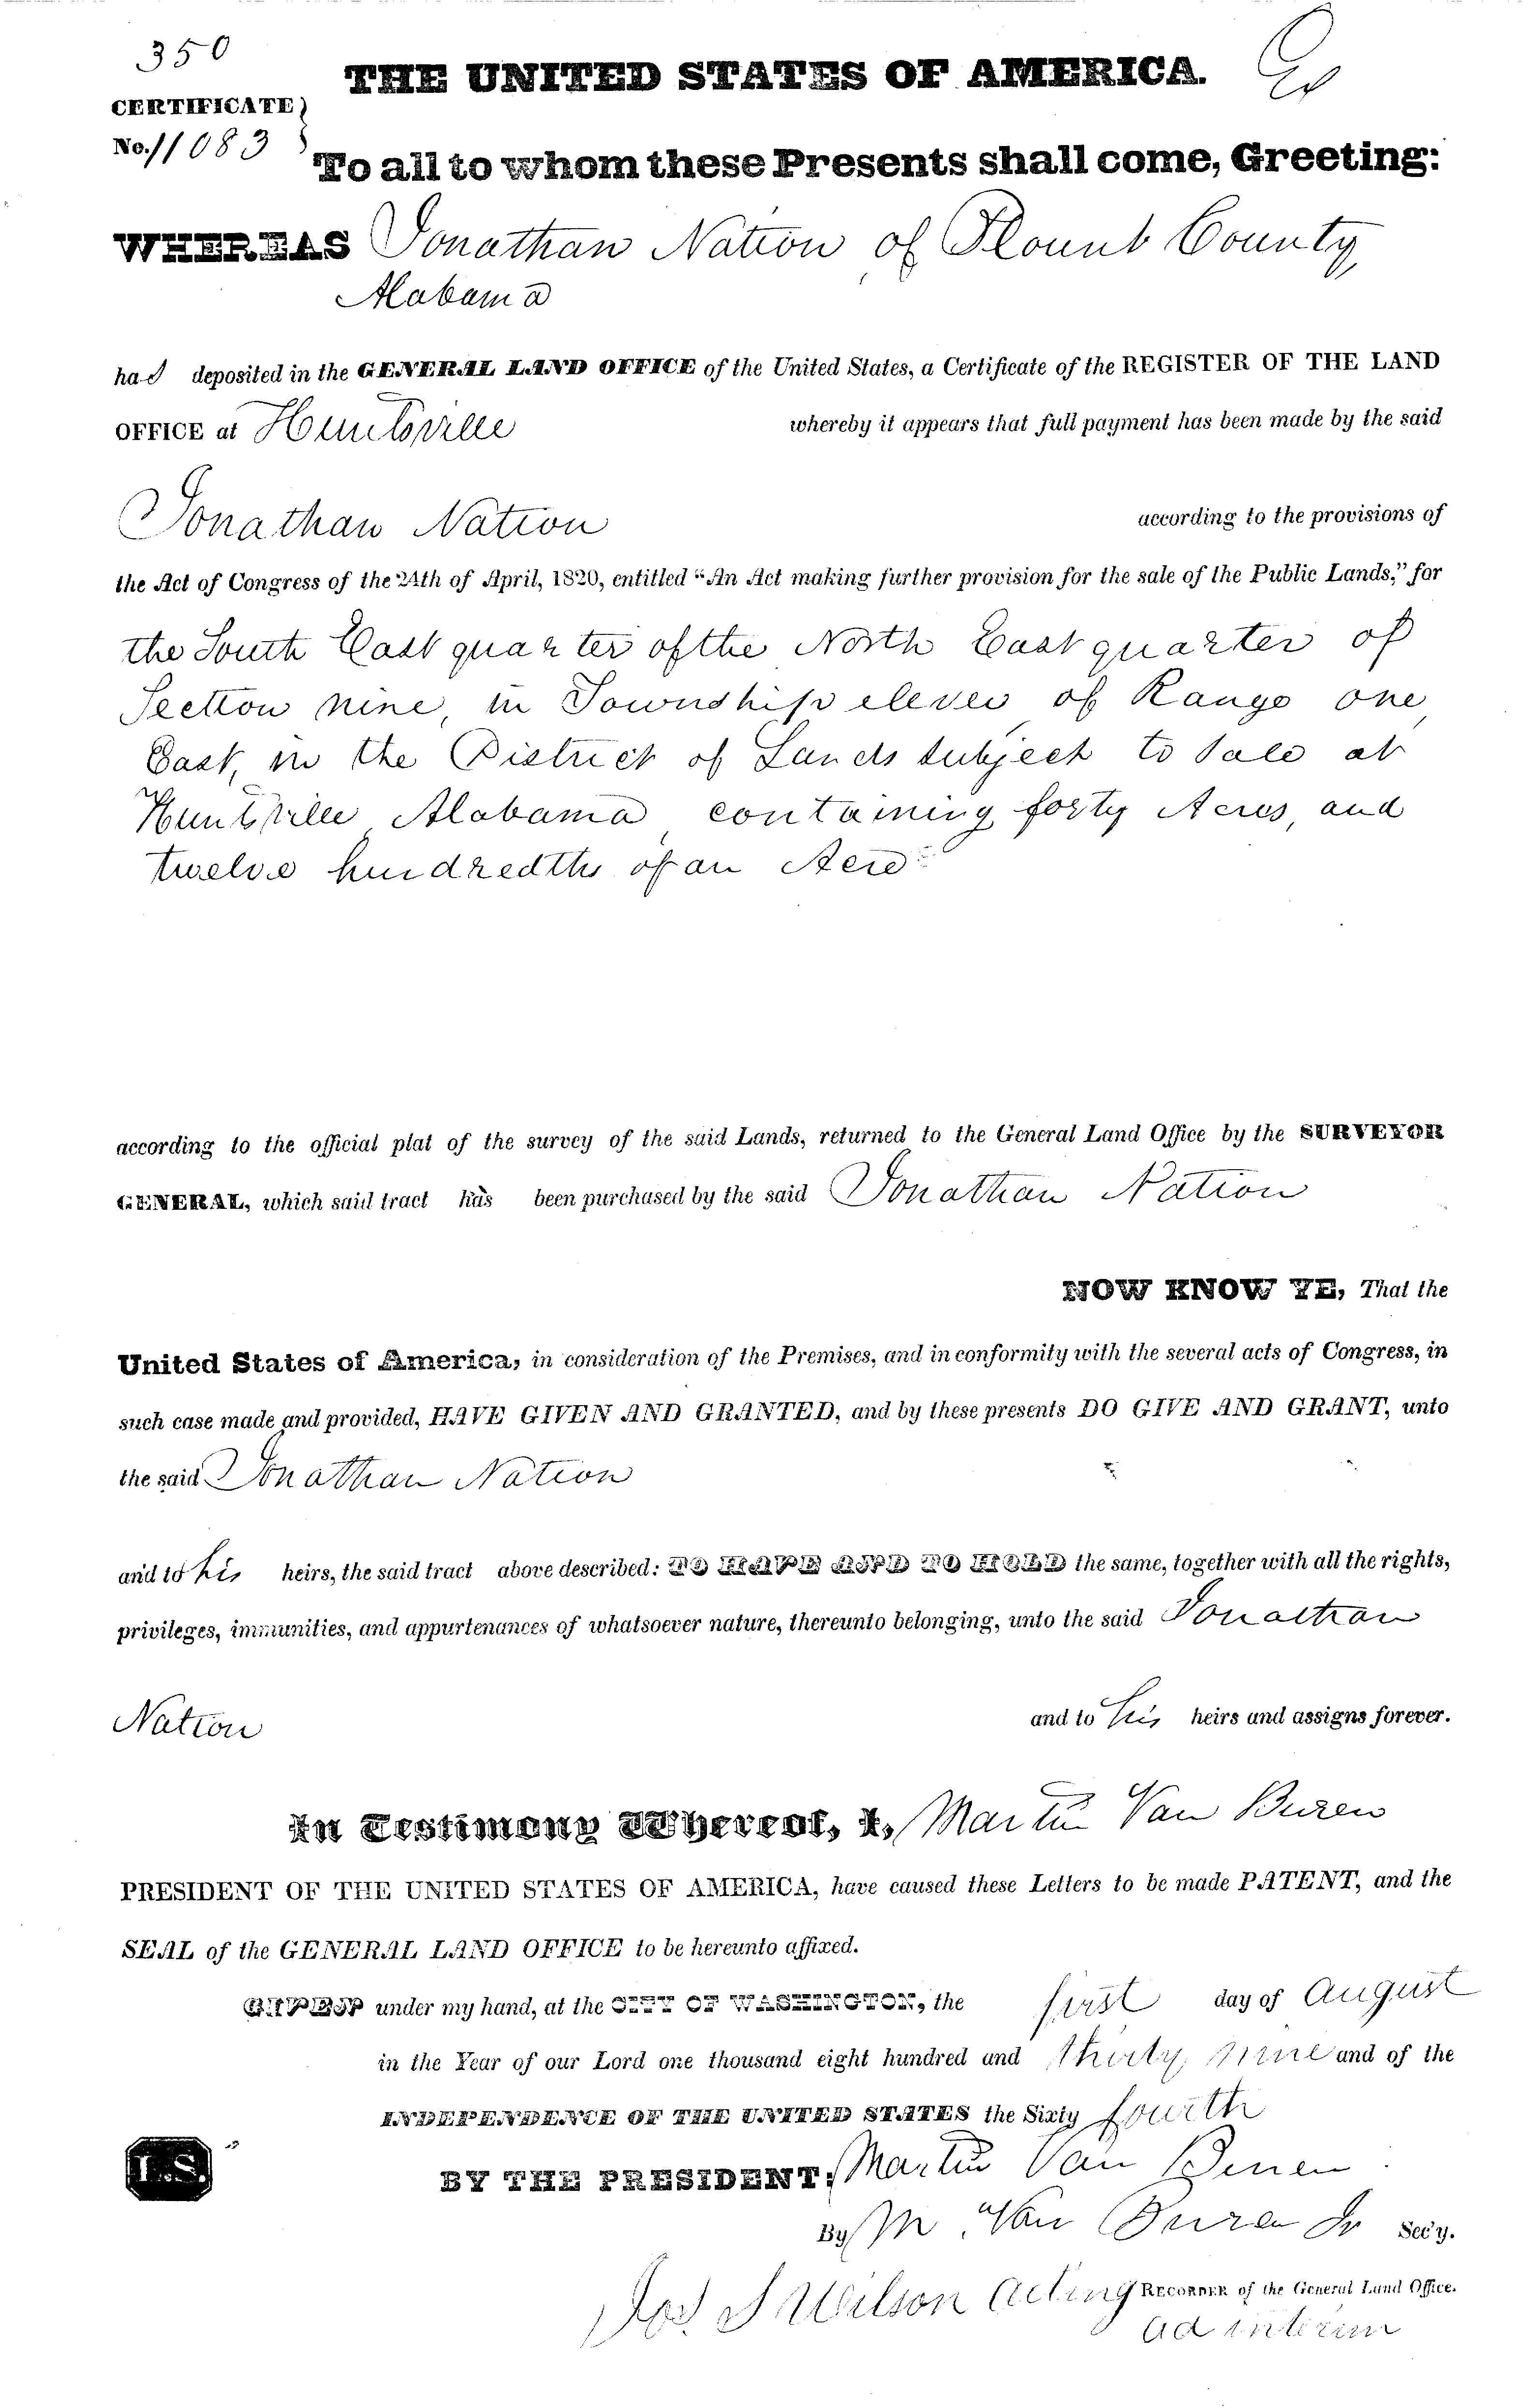 350
THE UNITED STATES OF AMERICA.
CERTIFICATE
No. 11083
To all to whom these Presents shall come, Greeting:
WHEREAS Jonathan Nation of Blount County,
Alabama
had deposited in the GENERAL LAND OFFICE of the United States, a Certificate of the REGISTER OF THE LAND
OFFICE at Huntsville whereby it appears that full payment has been made by the said
Jonathan Nation according to the provisions of
the Act of Congress of the 24th of April, 1820, entitled “An Act making further provision for the sale of the Public Lands,” for
the South East quarter of the North East quarter of
Section nine, in Township eleven, of Range one,
East, in the District of Lands subject to Sale at
Huntsville, Alabama, containing forty Acres, and
twelve hundredths of an Acre
according to the official plat of the survey of the said Lands, returned to the General Land Office by the SURVEYOR
GENERAL, which said tract has been purchased by the said Jonathan Nation
NOW KNOW YE, That the
United States of America, in consideration of the Premises, and in conformity with the several acts of Congress, in
such case made and provided, HAVE GIVEN AND GRANTED, and by these presents DO GIVE AND GRANT, unto
the said Jonathan Nation
and to his heirs, the said tract above described: TO HAVE AND TO HOLD the same, together with all the rights,
privileges, immunities, and appurtenances of whatsoever nature, thereunto belonging, unto the said Jonathan
Nation and to his heirs and assigns forever.
In Testimony Whereof, I, Martin Van Buren
PRESIDENT OF THE UNITED STATES OF AMERICA, have caused these Letters to be made PATENT, and the
SEAL of the GENERAL LAND OFFICE to be hereunto affixed.
GIVEN under my hand, at the CITY OF WASHINGTON, the first day of August
in the Year of our Lord one thousand eight hundred and thirty nine and of the
INDEPENDENCE OF THE UNITED STATES the Sixty fourth
L.S.
BY THE PRESIDENT: Martin Van Buren
By M. Van Buren Jr Sec'y.
Jos. S Wilson Acting RECORDER of the General Land Office.
ad interim